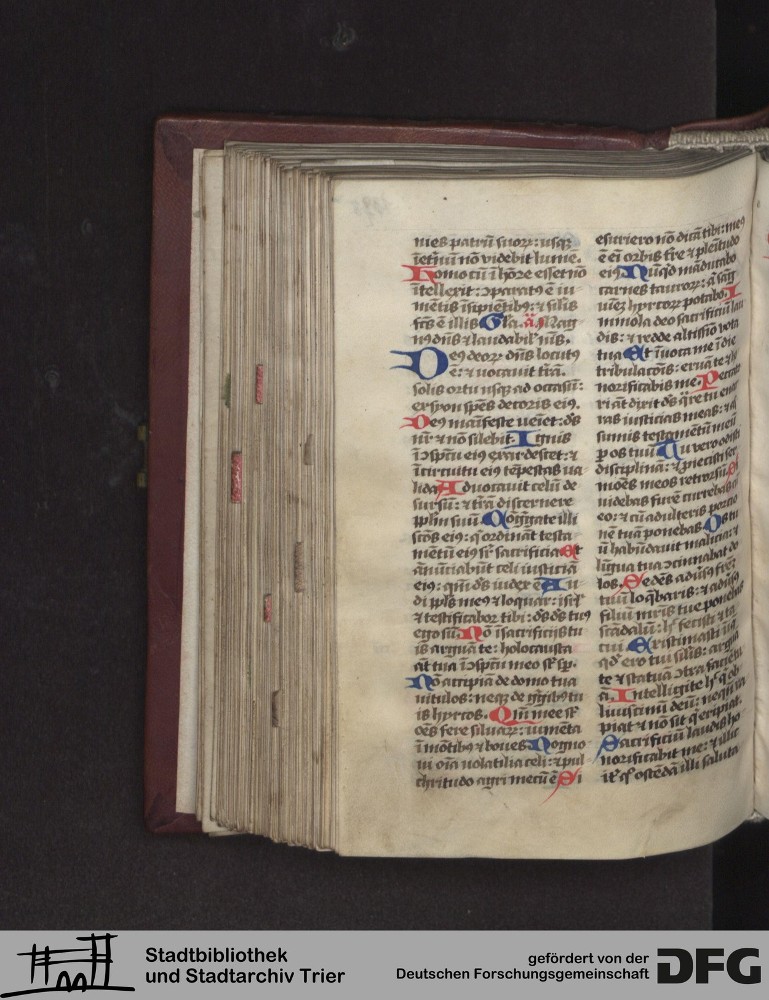 nies patrū suoꝝ: usqꝫ
ī et̄nū nō videbit lumē.
Homo cū ī hōre eēt nō
ītellexit: ↄparatꝰ ē iu
mētis īsipiētibꝰ: ⁊ silis
fc̄s ē illis Gla. a͞. Mag
nꝰ dn̄s ⁊ laudabil' nīs.
Deꝰ deoꝝ dn̄s locutꝰ
ē: ⁊ uocauit t̄rā.
solis ortu usqꝫ ad occasū:
ex syon spēs decoris eiꝰ.
Deꝰ māifeste ueīet: dꝰs
nr̄ ⁊ nō silebit. Ignis
ī ↄspectu eiꝰ exardescet: ⁊
ī circuitu eiꝰ tēpestas ua
lida Aduocauit celū de
sursū: ⁊ t̄rā discernere
pplm̄ suū Cōg̅gate illi
sc̄os eiꝰ: q' ordināt testa
mētū eiꝰ sr̄ sacrificia Et
ānūciabūt celi iusticiā
eiꝰ: qm̄ dꝰs iudex ē Au
di pp̄ls meꝰ ⁊ loquar: isr̄l
⁊ testificabor tibi: dꝰs dꝰs tuꝰ
ego sū. Nō ī sacrificijs tu
is arguā te: holocausta
āt tua ī ↄspc̄u meo sr̄ sp̄.
Nō accipiā de domo tua
uitulos: neqꝫ de g̅gibꝰ tu
is hyrcos. Qm̄ mee sr̄
oēs fere siluaꝝ: iumēta
ī mōtibꝰ ⁊ boues Cogno
ui oīa uolatilia celi: ⁊ pul
chritudo agri mecū ē Si
esuriero nō dicā tibi: meꝰ
ē eī orbis t̄re ⁊ plēitudo
eiꝰ Nūqͥd māducabo
carnes tauroꝝ: a͞ sāg
uīeꝫ hyrcoꝝ potabo. I
mmola deo sacrificiū lau
dis: ⁊ redde altissīo vota
tua Et īuoca me ī die
tribulacōis: eruā te ⁊ ho
norificabis me. Peccato
ri āt dixit dꝰs q̄re tu enar
ras iusticias meas: ⁊ as
sumis testamētū meū
ꝑ os tuū Tu vero odisti
disciplinā: ⁊ ꝓiecisti ser
mōes meos retrorsū Si
videbas furē currebas cū
eo: ⁊ cū adulteris portio
nē tuā ponebas Os tu
ū habūdauit malicia: ⁊
līgua tua ↄcinnabat do
los. Sedēs adūsꝰ fr̄eꝫ
tuū loq̄baris: ⁊ adūsꝰ
filiū mr̄is tue ponebas
scādalū: hͨ fecisti ⁊ ta
cui Existimasti iiq̄
qd' ero tui silis: arguā
te ⁊ statuā ↄtra faciē tu
ā. Intelligite hͨ q' ob
liuiscimī deū: neqn̄ ra
piat ⁊ nō sit q' eripiat.
Sacrificiū laudis ho
norificabit me: ⁊ illic
it̄ q' ostēdā illi saluta
Stadtbibliothek
und Stadtarchiv Trier
gefördert von der
Deutschen Forschungsgemeinschaft
DFG